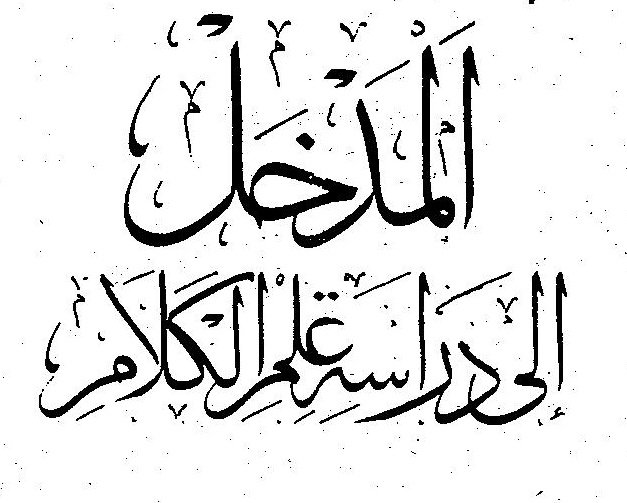 المدخل
إلى دراسة علم الكلام